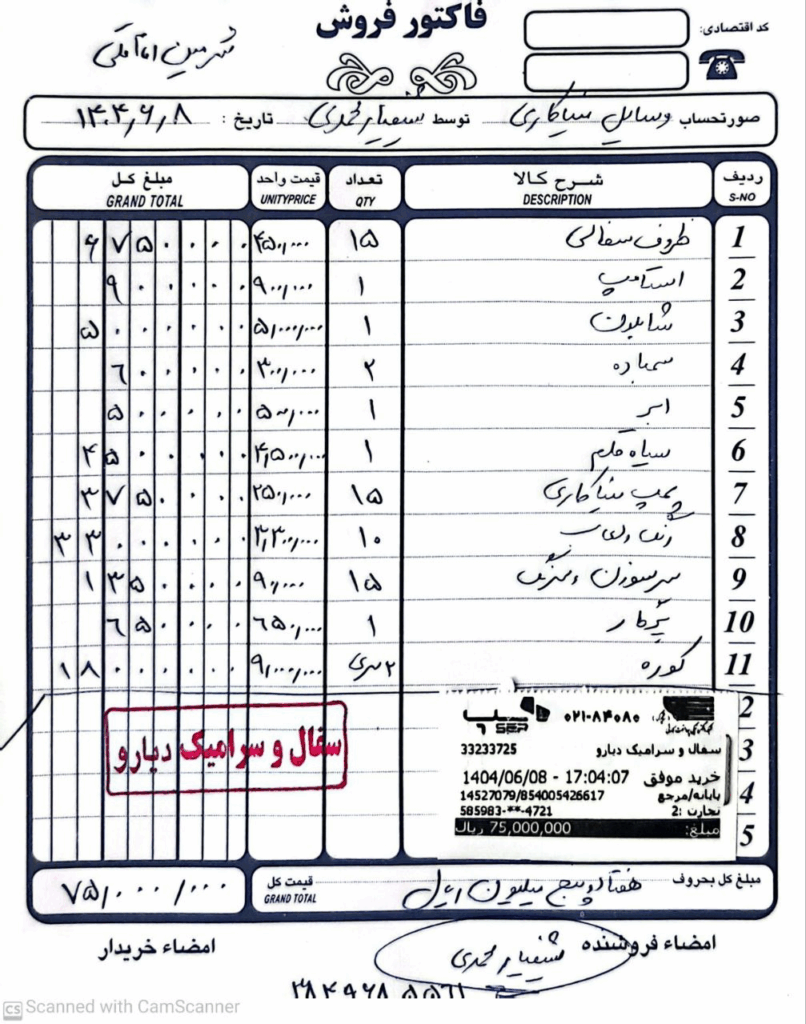 فاکتور فروش
کد اقتصادی:
صورتحساب وسایل میناکاری توسط شهریار محمدی تاریخ: ۱۴۰۴,۶,۸
ردیف شرح کالا تعداد قیمت واحد مبلغ کل
S-NO DESCRIPTION QTY UNITYPRICE GRAND TOTAL
1 ظروف سفالی ۱۵ ۴۵۰,۰۰۰ ۶۷۵۰۰۰۰
2 استامپ ۱ ۹۰۰,۰۰۰ ۹۰۰۰۰۰
3 شابلون ۱ ۵,۰۰۰,۰۰۰ ۵۰۰۰۰۰۰
4 سمباده ۲ ۳۰۰,۰۰۰ ۶۰۰۰۰۰
5 ابر ۱ ۵۰۰,۰۰۰ ۵۰۰۰۰۰
6 سیاه قلم ۱ ۴,۵۰۰,۰۰۰ ۴۵۰۰۰۰۰
7 پمپ میناکاری ۱۵ ۲۵۰,۰۰۰ ۳۷۵۰۰۰۰
8 رنگ ۱۰ ۳,۳۰۰,۰۰۰ ۳۳۰۰۰۰۰۰
9 سرسوزن ۱۵ ۹۰,۰۰۰ ۱۳۵۰۰۰۰
10 پرگار ۱ ۶۵۰,۰۰۰ ۶۵۰۰۰۰
11 کوره ۲ سری ۹,۰۰۰,۰۰۰ ۱۸۰۰۰۰۰۰
2
3
4
5
سفال و سرامیک دبارو
سپ
SEP
۰۲۱-۸۴۰۸۰
سفال و سرامیک دبارو 33233725
خرید موفق 1404/06/08 - 17:04:07
پایانه/مرجع 14527079/854005426617
تجارت: 2 585983-**-4721
مبلغ: 75,000,000 ریال
مبلغ کل بحروف هفتاد و پنج میلیون ریال قیمت کل ۷۵,۰۰۰,۰۰۰
GRAND TOTAL
امضاء فروشنده امضاء خریدار
CS Scanned with CamScanner